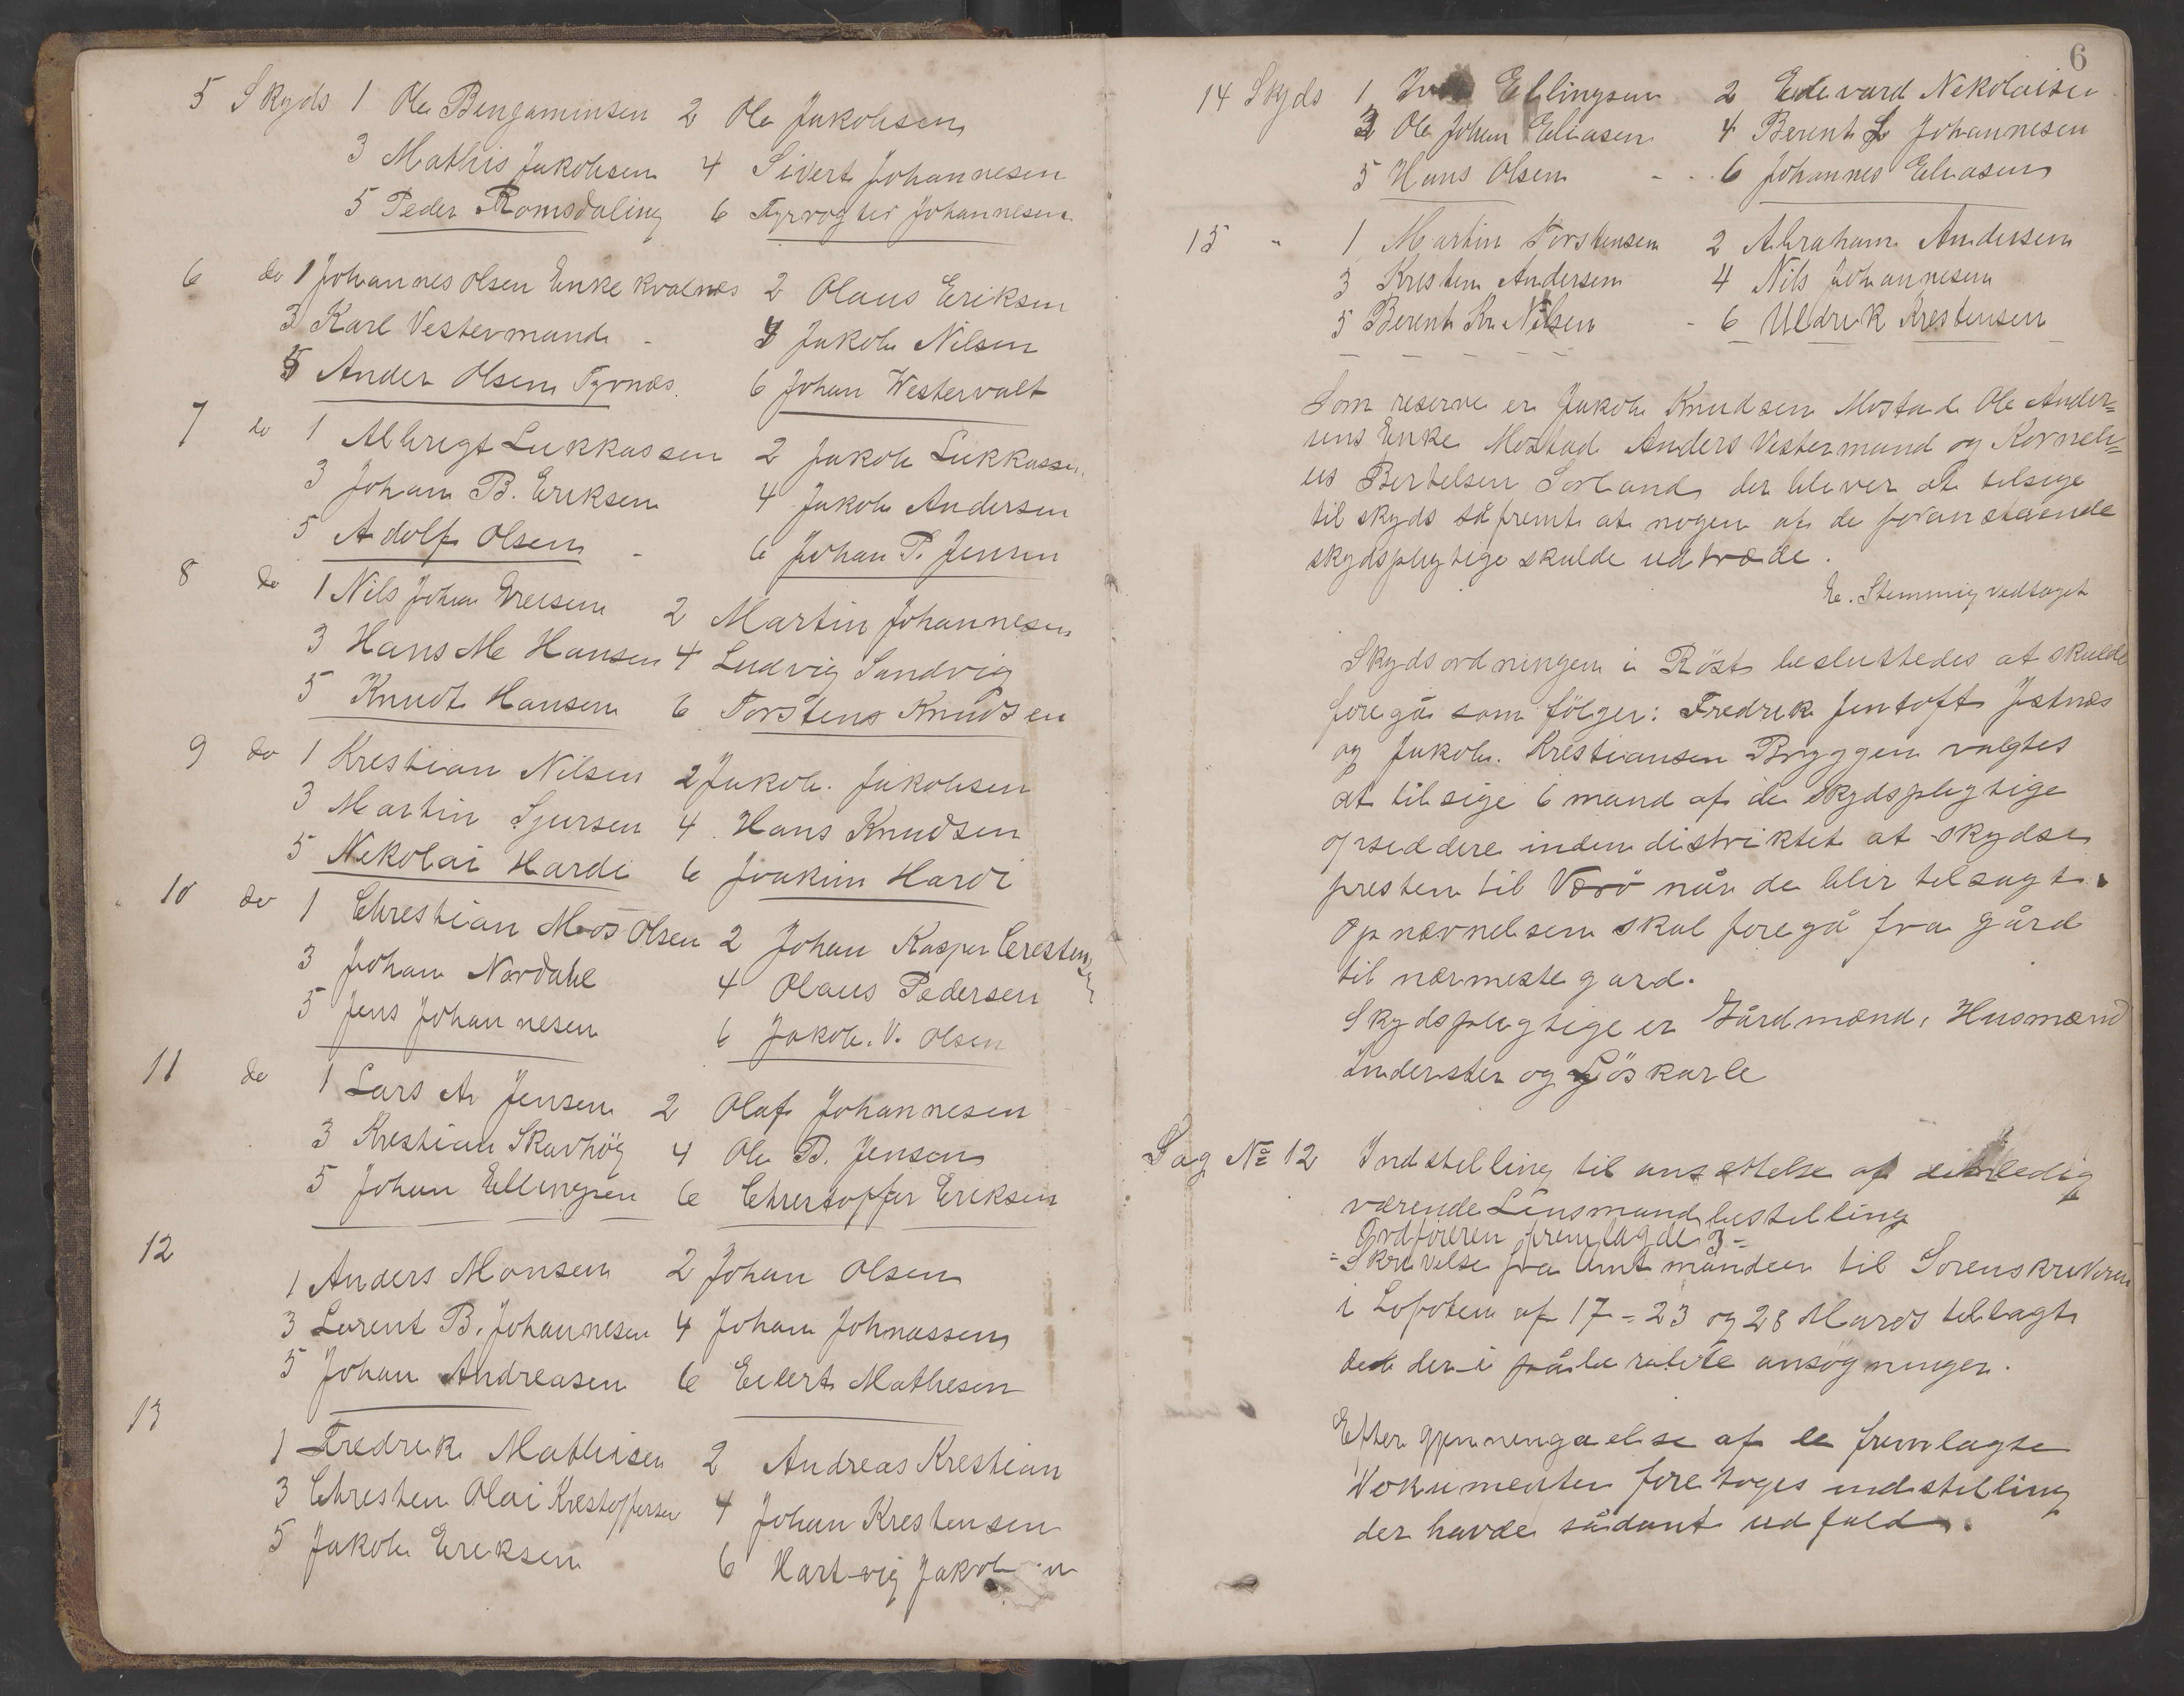 5 Skyds 1 Ole Bengaminsen 2 Ole Jakobsen
3 Mathis Jakobsen 4 Sivert Johannesen
5 Peder Romsdaling 6 Fyrvogter Johannesen
6 do 1 Johannes Olsen Enke Kvalnes 2 Olaus Eriksen
3 Karl Vestermand - 4 Jakob Nilsen
5 Ander Olsen Tyvnæs. 6 Johan Westervalt
7 do 1 Albrigt Lukkassen 2 Jakob Lukkassen
3 Johan B. Eriksen 4 Jakob Andersen
5 Adolf Olsen - 6 Johan P. Jensen
8 do 1 Nils Johan 2 Martin Johannesen
3 Hans M Hansen 4 Ludvig Sandvig
5 Knudt Hansen 6 Torstens Knudsen
9 do 1 Krestian Nilsen 2 Jakob. Jakobsen
3 Martin Sjursen 4 Hans Knudsen
5 Nekolai Hardi 6 Joakim Hardi
10 do 1 Chrestian Moos Olsen 2 Johan Kasper Crestensen
3 Johan Nordahl 4 Olaus Pedersen
5 Jens Johannesen 6 Jakob. V. Olsen
11 do 1 Lars A. Jensen 2 Olaf Johannesen
3 Krestian Skarhög 4 Ole B. Jensen
5 Johan Ellingsen 6 Chrestopffer Eriksen
12
1 Anders Monsen 2 Johan Olsen
3 Lorent B. Johannesen 4 Johan Johnassen
5 Johan Andreasen 6 Eilert Mathesen
13
1 Fredrik Mathisen 2 Andreas Krestian
3 Chresten Olai Krestoffersen 4 Johan Krestensen
5 Jakob Eriksen 6 Hartvig Jakob
6
14 Skyds 1 Ellingsen 2 Edevard Nekolaisen
3 Ole Johan Eliasen 4 Berent L Johannesen
5 Hans Olsen - - 6 Johannes Eliasen
15 " 1 Martin Torstensen 2 Abraham Andersen
3 Kresten Andersen 4 Nils Johannesen
5 Berent Kr. Nilsen - 6 Uldrik Krestensen
Som reserve er Jakob Knudsen Mostad Ole Ander=
sens Enke Mostad Anders Vestermand og Korneli=
us Bertelsen Sørland der bliver at tilsige
til skyds såfremt at nogen af de foranstaende
skydspligtige skulde udtræde.
E. Stemmig vedtaget
Skydsordningen i Röst besluttedes at skulde
foregå som fölger: Fredrik Jentoft Ystnæs
og Jakob. Krestiansen Bryggen valgtes
at tilsige 6 mand af de skydspligtige
opsiddere inden distriktet at skydse
presten til Værö når de blir tilsagt.
Opnævnelsen skal foregå fra gård
til nærmeste gard.
Skydspligtige er Gårdmænd, Husmænd
Inderster og Löskarle
Sag № 12 Indstilling til ansættelse af ledig
værende Lensmandbestilling
Ordføreren fremlagde 3-
-Skrivelse fra Amtmanden til Sorenskriveren
i Lofoten af 17 - 23 og 28 Mards tillagt
de deri påberabte ansøgninger.
Efter gjennengaelse af de fremlagte
Dokumenter foretoges indstilling
der havde sådant udfald.